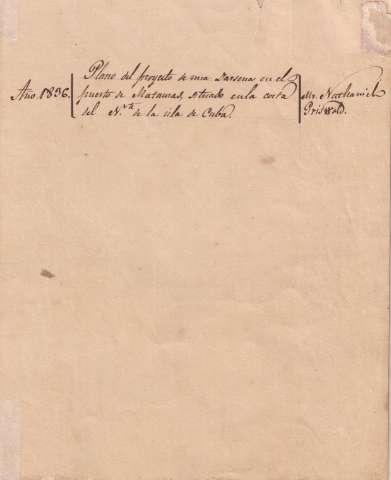 Año. 1836.
Plano del proyecto de una Darsena en el
puerto de Matanzas, situado en la costa
del N.te de la isla de Cuba.
Mr. Nathaniel
Griswold.